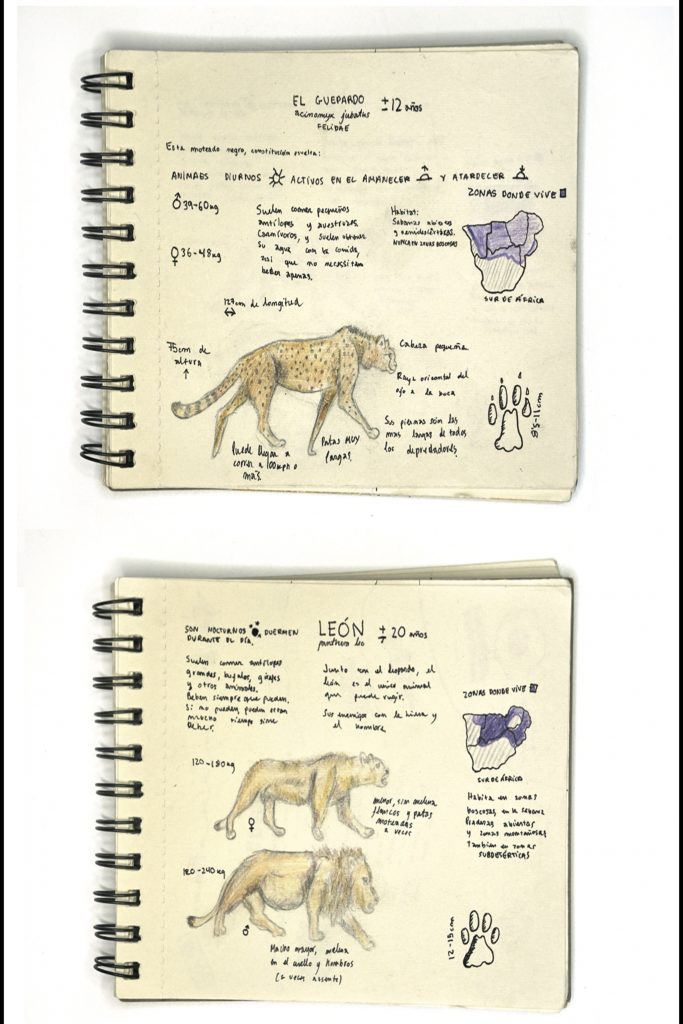 EL GUEPARDO ± 12 años
acinonyx jubatus
FELIDAE
Esta moteado negro, constitución esvelta:
ANIMAES DIURNOS ACTIVOS EN EL AMANECER Y ATARDECER
ZONAS DONDE VIVE
♂ 39-60kg
♀ 36-48kg
Suelen comer pequeños
antílopes y avestruzes.
Carnívoros, y suelen obtener
su agua con la comida,
asi que no necesitan
beber apenas.
Habitat:
Sabanas abiertas
y semidesérticas.
NUNCA EN ZONAS BOSCOSAS
SUR DE ÁFRICA
↔ de longitud
75cm de
altura
↑
Cabeza pequeña
Raya orizontal del
ojo a la boca
Sus piernas són las
mas largas de todos
los depredadores.
Puede llegar a
correr a 100mph o
más.
Patas MUY
largas.
SON NOCTURNOS DUERMEN
DURANTE EL DÍA.
LEÓN ± 20 años
panthera leo
Suelen comer antílopes
grandes, bufalos, girafes
y otros animales.
Beben siempre que pueden.
Si no pueden pueden estar
mucho tiempo sine
Beber.
Junto con el leopardo, el
león es el unico animal
que puede rugir.
Sus enemigos son la hiena y
el hombre.
ZONAS DONDE VIVE
SUR DE ÁFRICA
Habita en zonas
boscosas en la sabana
Praderas abiertas
y zonas montañosas
Tambien en zonas
SUBDESÉRTICAS
120-180kg
♀
menor, sin melena
flancos y patas
moteadas
a veces
♂
Macho mayor, melena
en el cuello y hombros
(a veces ausente)